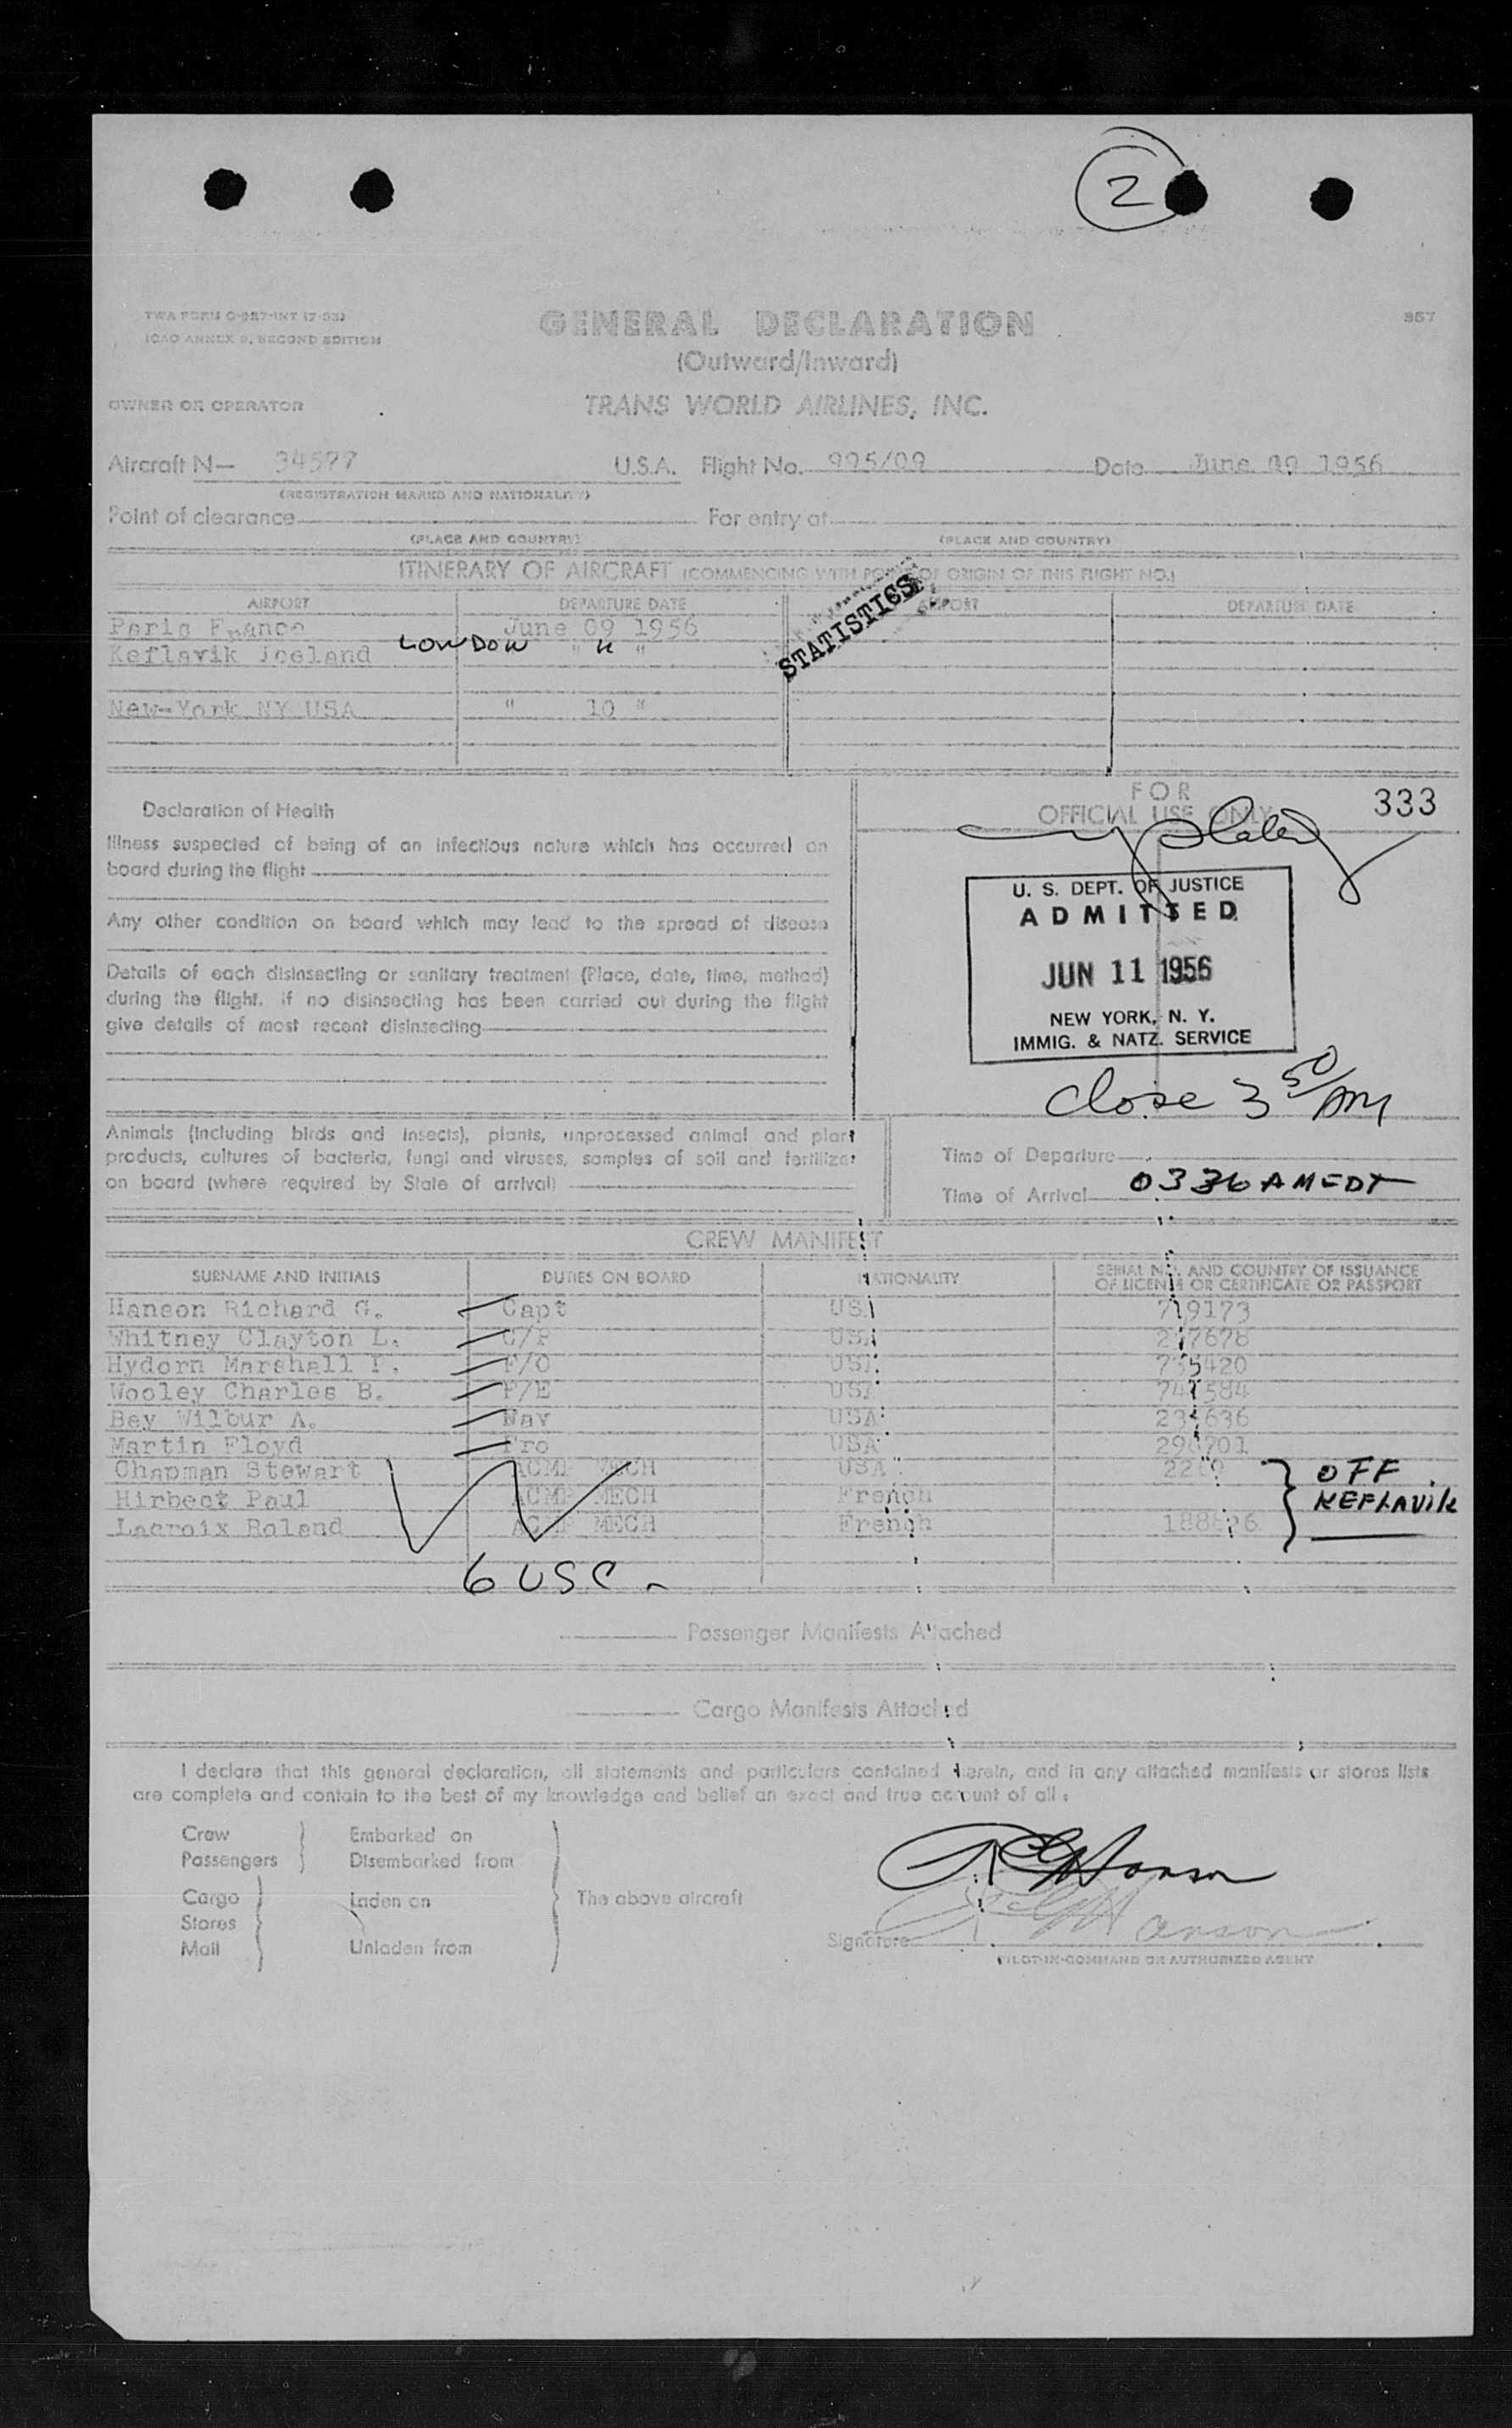 2
TWA FORM O-957-INT (7-53)
ICAO ANNEX 9, SECOND EDITION
GENERAL DECLARATION
957
(Outward/Inward)
OWNER OR OPERATOR
TRANS WORLD AIRLINES, INC.
Aircraft N— 34577 U.S.A. Flight No. 995/09 Date June 09 1956
(REGISTRATION MARKS AND NATIONALITY)
Point of clearance For entry at
(PLACE AND COUNTRY) (PLACE AND COUNTRY)
ITINERARY OF AIRCRAFT (COMMENCING WITH POINT OF ORIGIN OF THIS FLIGHT NO.)
AIRPORT DEPARTURE DATE AIRPORT DEPARTURE DATE
STATISTICS
Paris France June 09 1956
Keflavik Iceland LONDON " " "
New-York NY USA " 10 "
Declaration of Health
Illness suspected of being of an infectious nature which has occurred on
board during the flight
Any other condition on board which may lead to the spread of disease
Details of each disinsecting or sanitary treatment (Place, date, time, method)
during the flight. If no disinsecting has been carried out during the flight
give details of most recent disinsecting
FOR
OFFICIAL USE ONLY
333
U. S. DEPT. OF JUSTICE
ADMITTED
JUN 11 1956
NEW YORK, N. Y.
IMMIG. & NATZ. SERVICE
Close 3 50/AM
Animals (including birds and insects), plants, unprocessed animal and plant
products, cultures of bacteria, fungi and viruses, samples of soil and fertilizer
on board (where required by State of arrival)
Time of Departure
Time of Arrival 0336 AM EDT
CREW MANIFEST
SURNAME AND INITIALS DUTIES ON BOARD NATIONALITY SERIAL NO. AND COUNTRY OF ISSUANCE
OF LICENSE OR CERTIFICATE OR PASSPORT
Hanson Richard G. Capt USA 719173
Whitney Clayton L. USA 247678
Hydorn Marshall F/O USA 735420
Wooley Charles B. F/E USA 741584
Bey Wilbur A. Nav USA 234636
Martin Floyd USA 298701
Chapman Stewart ACMF MECH USA
Hirbect Paul ACMF MECH French
Lacroix Roland ACMF MECH French
OFF
KEFLAVIK
6 USC
Passenger Manifests Attached
Cargo Manifests Attached
I declare that this general declaration, all statements and particulars contained herein, and in any attached manifests or stores lists
are complete and contain to the best of my knowledge and belief an exact and true account of all :
Crew Embarked on
Passengers Disembarked from
Cargo Laden on The above aircraft
Stores
Mail Unladen from
R G Hanson
R G Hanson
Signature
PILOT-IN-COMMAND OR AUTHORIZED AGENT